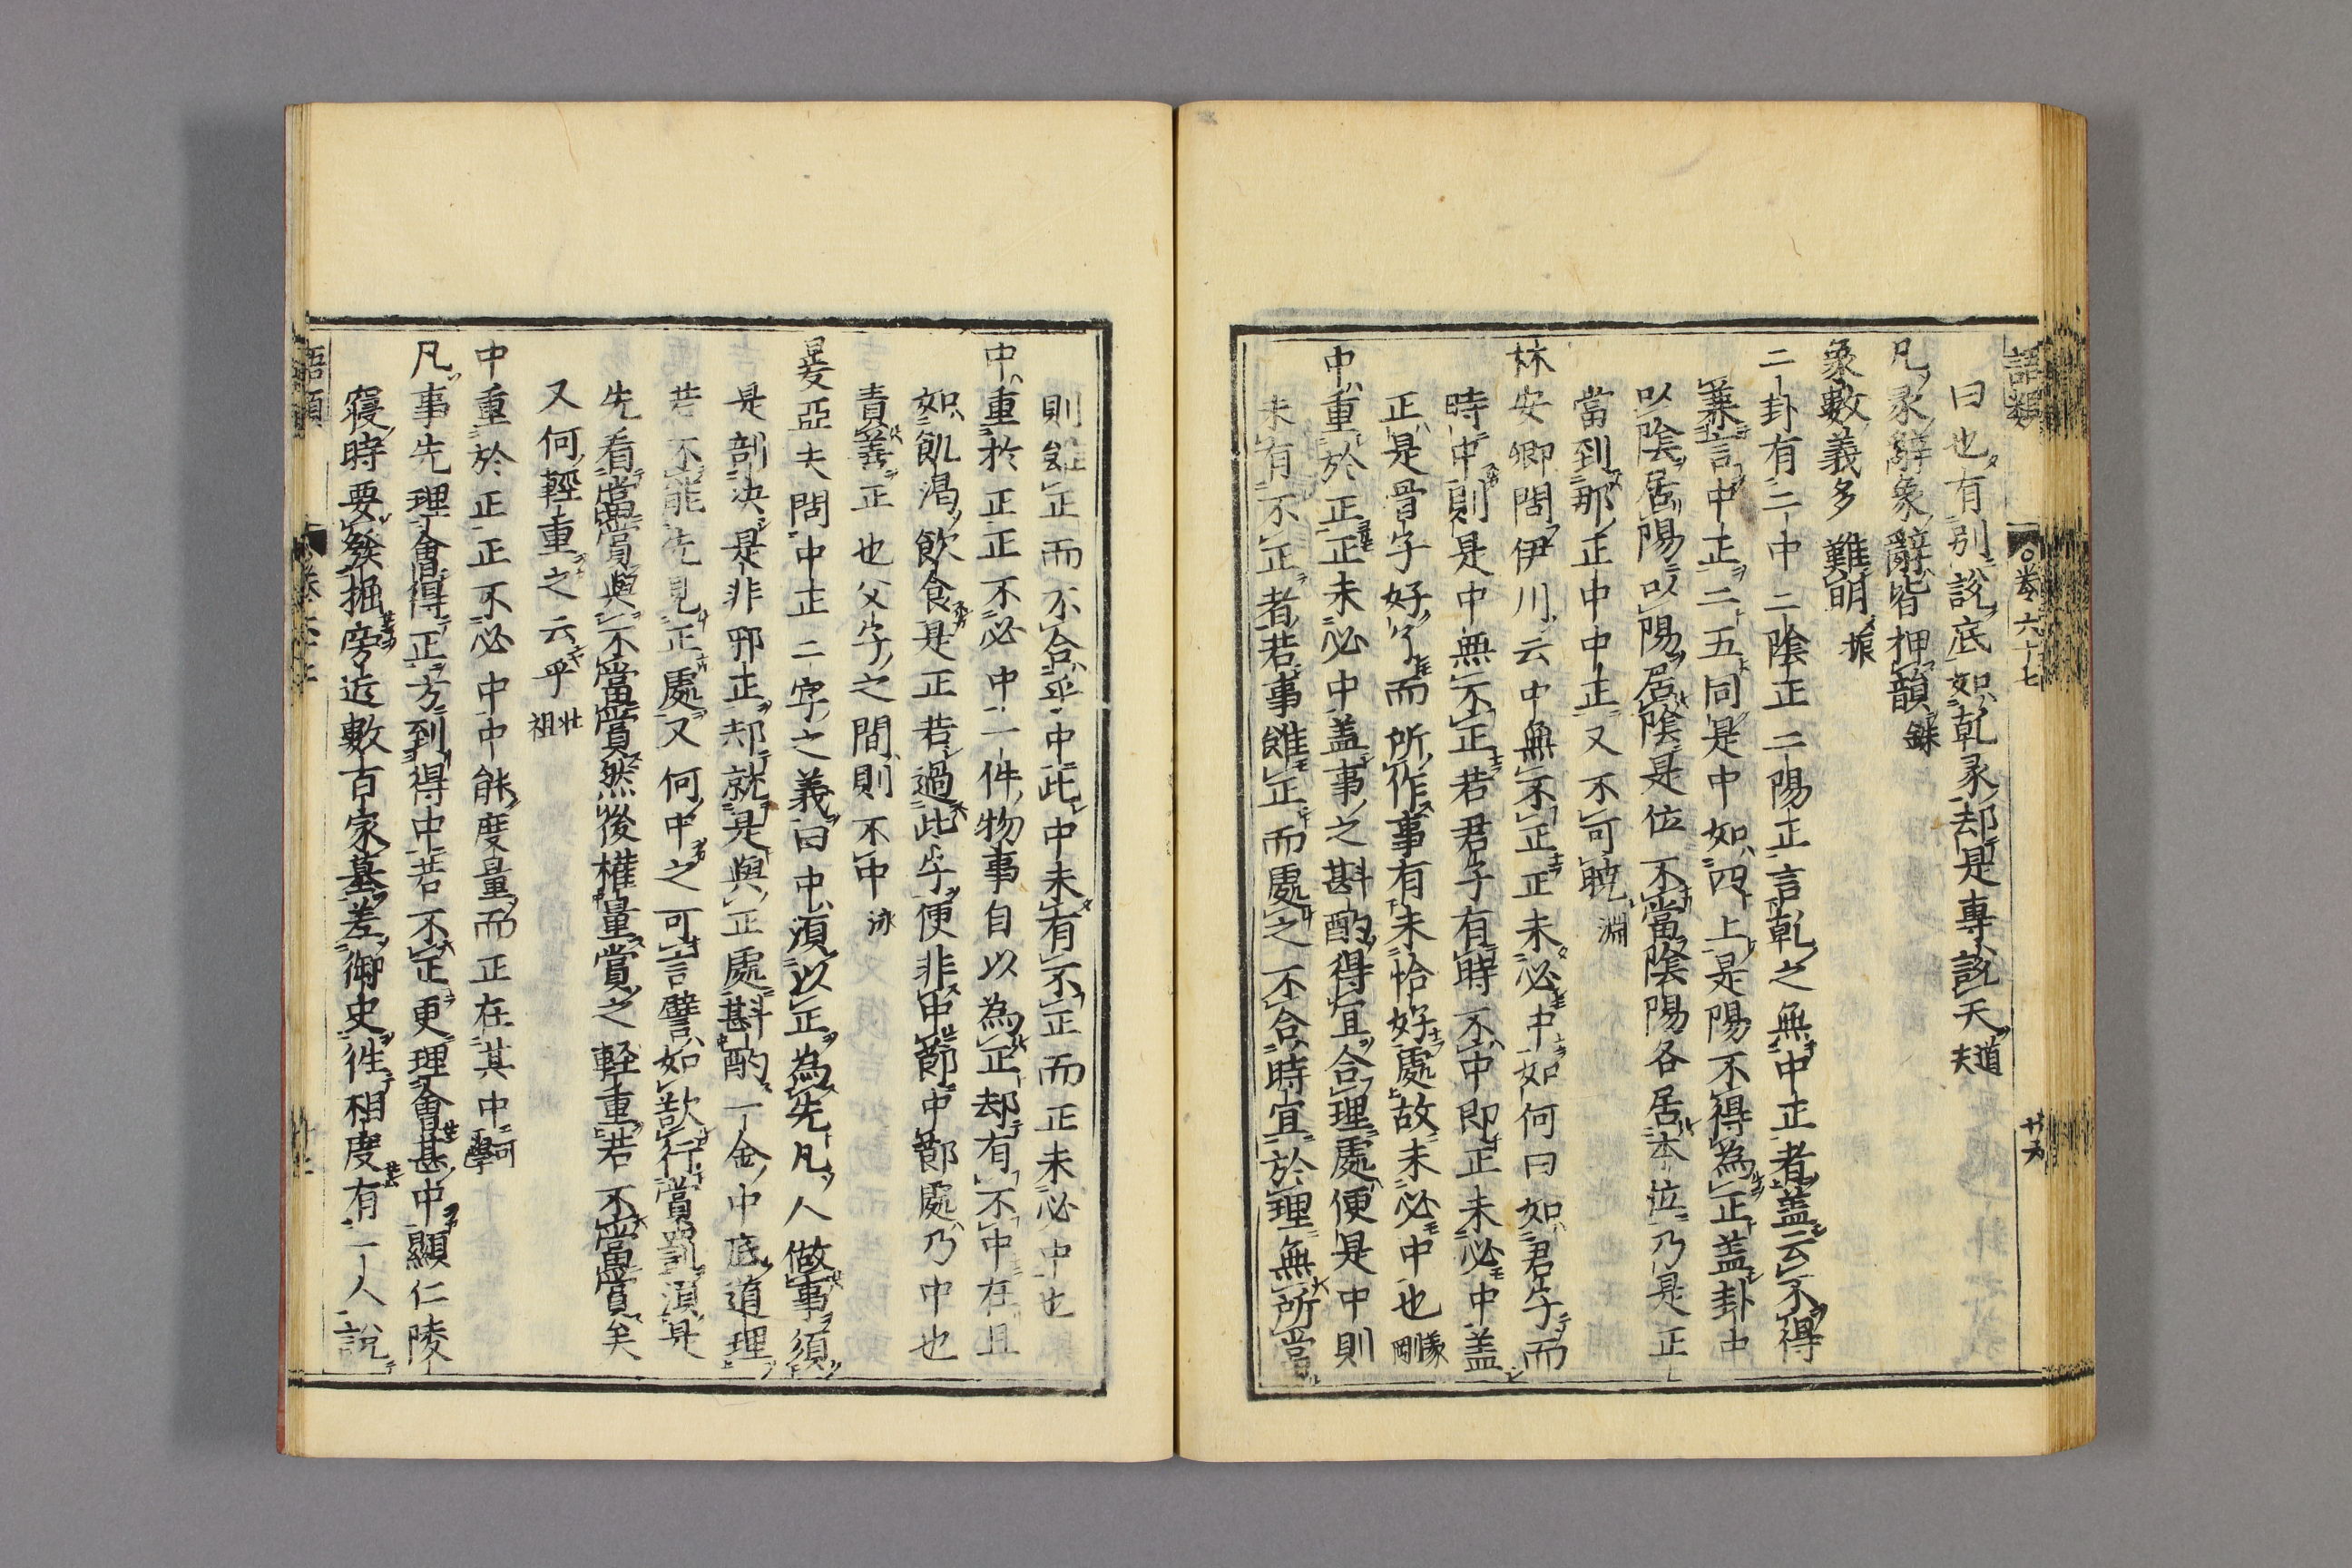 語類 ○卷六十七 廿五
曰也有別說底如乾彖却是專說天道夫
凡彖辭象辭皆押韻銖
象數義多難明振
二卦有二中二陰正二陽正言乾之無中正者盖云不得
兼言中正二五同是中如四上是陽不得為正盖卦中
以陰居陽以陽居陰是位不當陰陽各居本位乃是正
當到那正中中正又不可曉淵
林安卿問伊川云中無不正正未必中如何曰如君子而
時中則是中無不正若君子有時不中即正未必中盖
正是骨子好了而所作事有未恰好處故未必中也義剛
中重於正正未必中盖事之斟酌得宜合理處便是中則
未有不正者若事雖正而處之不合時宜於理無所當
則雖正而不合乎中此中未有不正而正未必中也
中重於正正不必中一件物事自以為正却有不中在且
如飢渴飲食是正若過此子便非中節中節處乃中也
責善正也父子之間則不中泳
㬊亞夫問中正二字之義曰中須以正為先凡人做事須
是剖決是非邪正却就是與正處斟酌一个金中底道理
若不能先見正處又何中之可言譬如欲行賞罰須是
先看當賞與不當賞然後權量賞之輕重若不當賞矣
又何輕重之云乎壯祖
中重於正正不必中中能度量而正在其中可學
凡事先理會得正方到得中若不正更理會甚中顯仁陵
寢時要發掘旁近數百家墓差御史往相度有一人說
語類 卷六十七